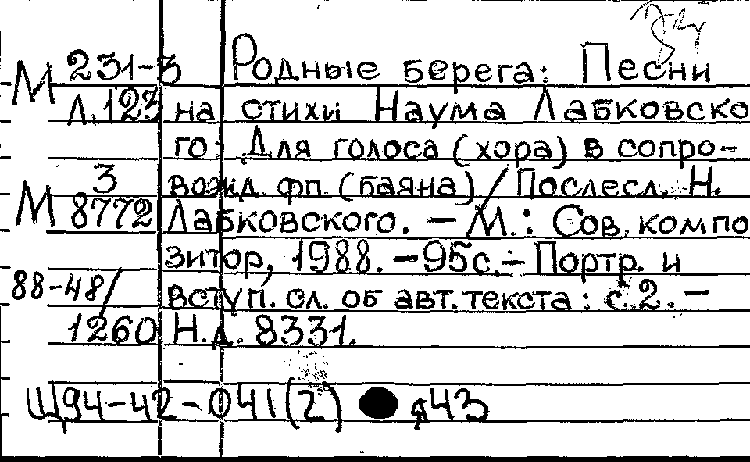 М 231-3 Родные берега: Песни
Л.123 на стихи Наума Лабковско
го: Для голоса (хора) в сопро-
3 вожд. фп. (баяна) / Послесл. Н.
М 8772 Лабковского. — М.: Сов. компо
зитор, 1988. — 95с. — Портр. и
88-48/ вступ. сл. об авт. текста: с.2. —
1260 Н.д. 8331.
Щ94-42-041(2) я43